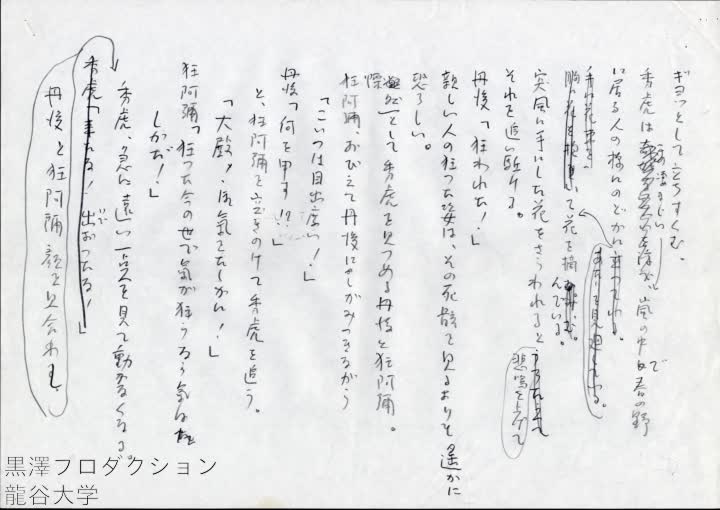 ギョッとして立ちすくむ。
秀虎は、この凄まじい嵐の中で春の野
に居る人の様にのどかに
あたりを見廻している。
手に花束を
胸に花を抱いて花を摘んでいる。
突風に手にした花をさらわれると
悲鳴を上げて
それを追い駈ける。
丹後「狂われた！」
親しい人の狂った姿は、その死骸を見るよりも遥かに
恐ろしい。
愕然として秀虎を見つめる丹後と狂阿彌。
狂阿彌、おびえて丹後にしがみつきながら
「こいつは目出度い！」
丹後「何を申す!?」
と、狂阿彌を突きのけて秀虎を追う。
「大殿！お気をたしかに！」
狂阿彌「狂った今の世で気が狂うなら気は
たしかだ！」
秀虎、急に遠い一点を見て動かなくなる。
秀虎「来たな！出おったな！」
丹後と狂阿彌顔を見合わす
黒澤プロダクション
龍谷大学